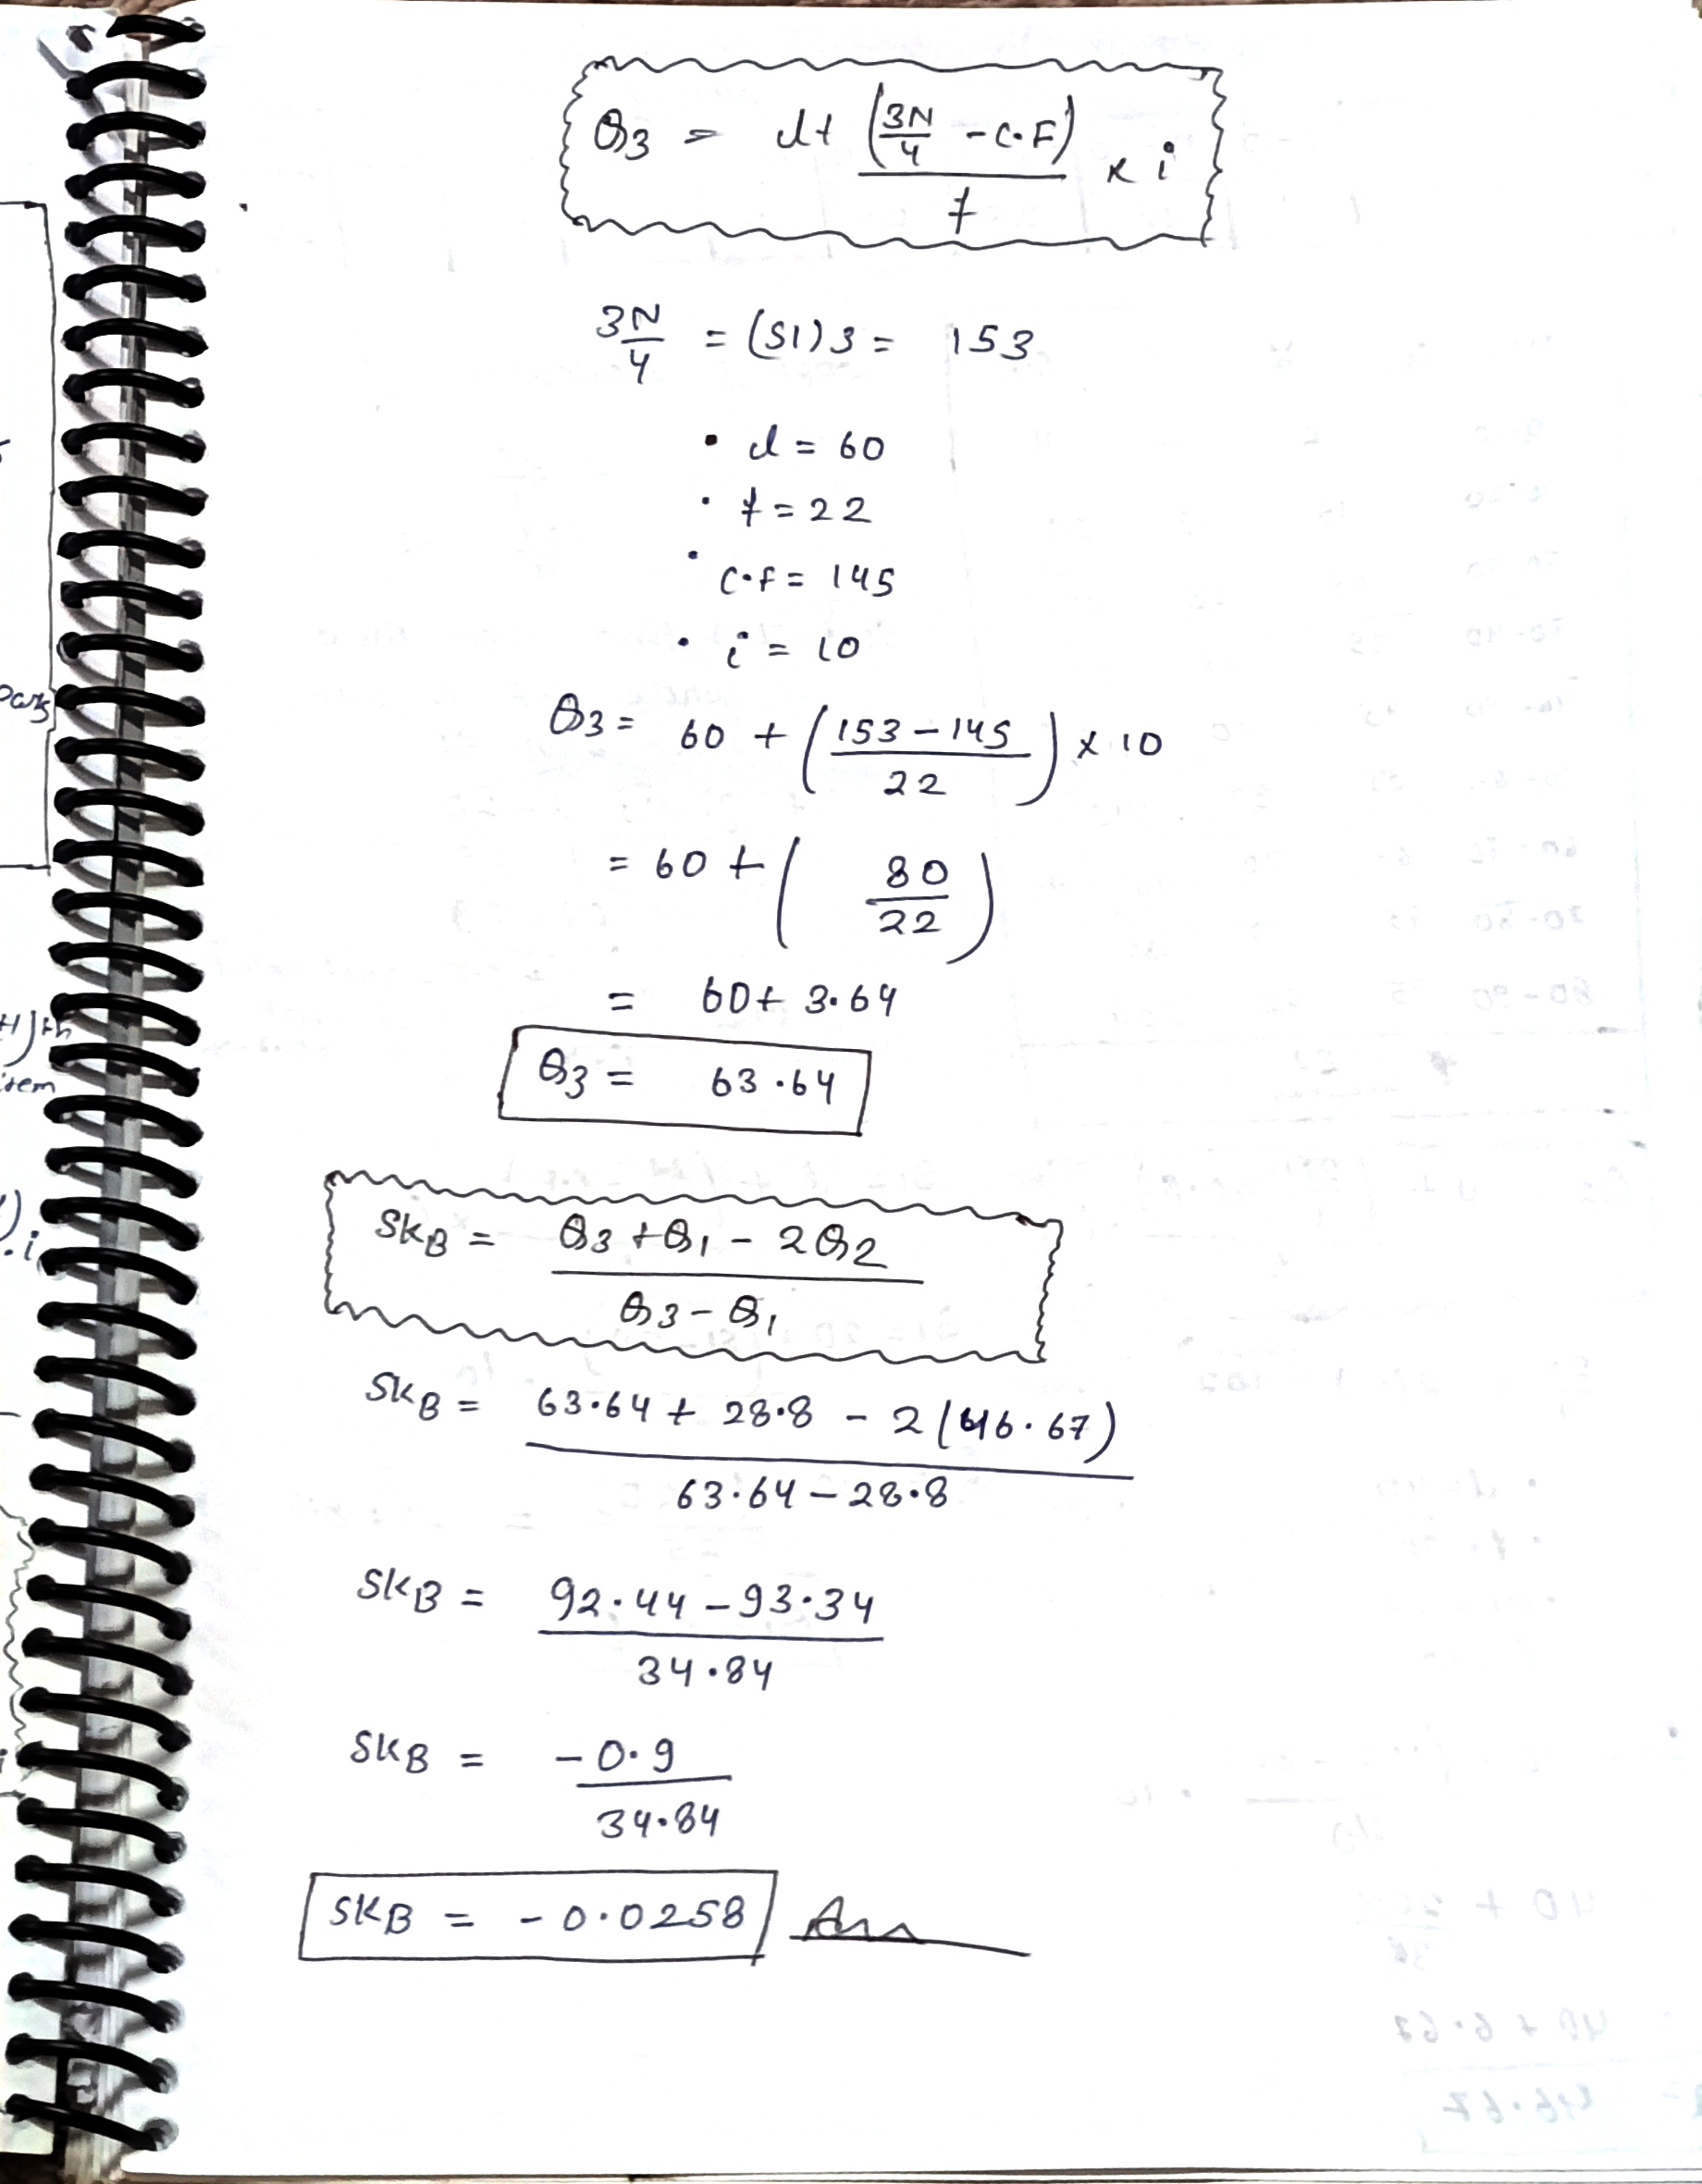 Q3 = l+ (3N/4 - C.F)/f × i
3N/4 = (51)3 = 153
• l = 60
• f = 22
• C.f = 145
• i = 10
Q3 = 60 + (153 - 145/22) × 10
= 60 + (80/22)
= 60 + 3.64
Q3 = 63.64
SKB = Q3 + Q1 - 2Q2/Q3 - Q1
SKB = 63.64 + 28.8 - 2(46.67)/63.64 - 28.8
SKB = 92.44 - 93.34/34.84
SKB = -0.9/34.84
SKB = -0.0258 Ans